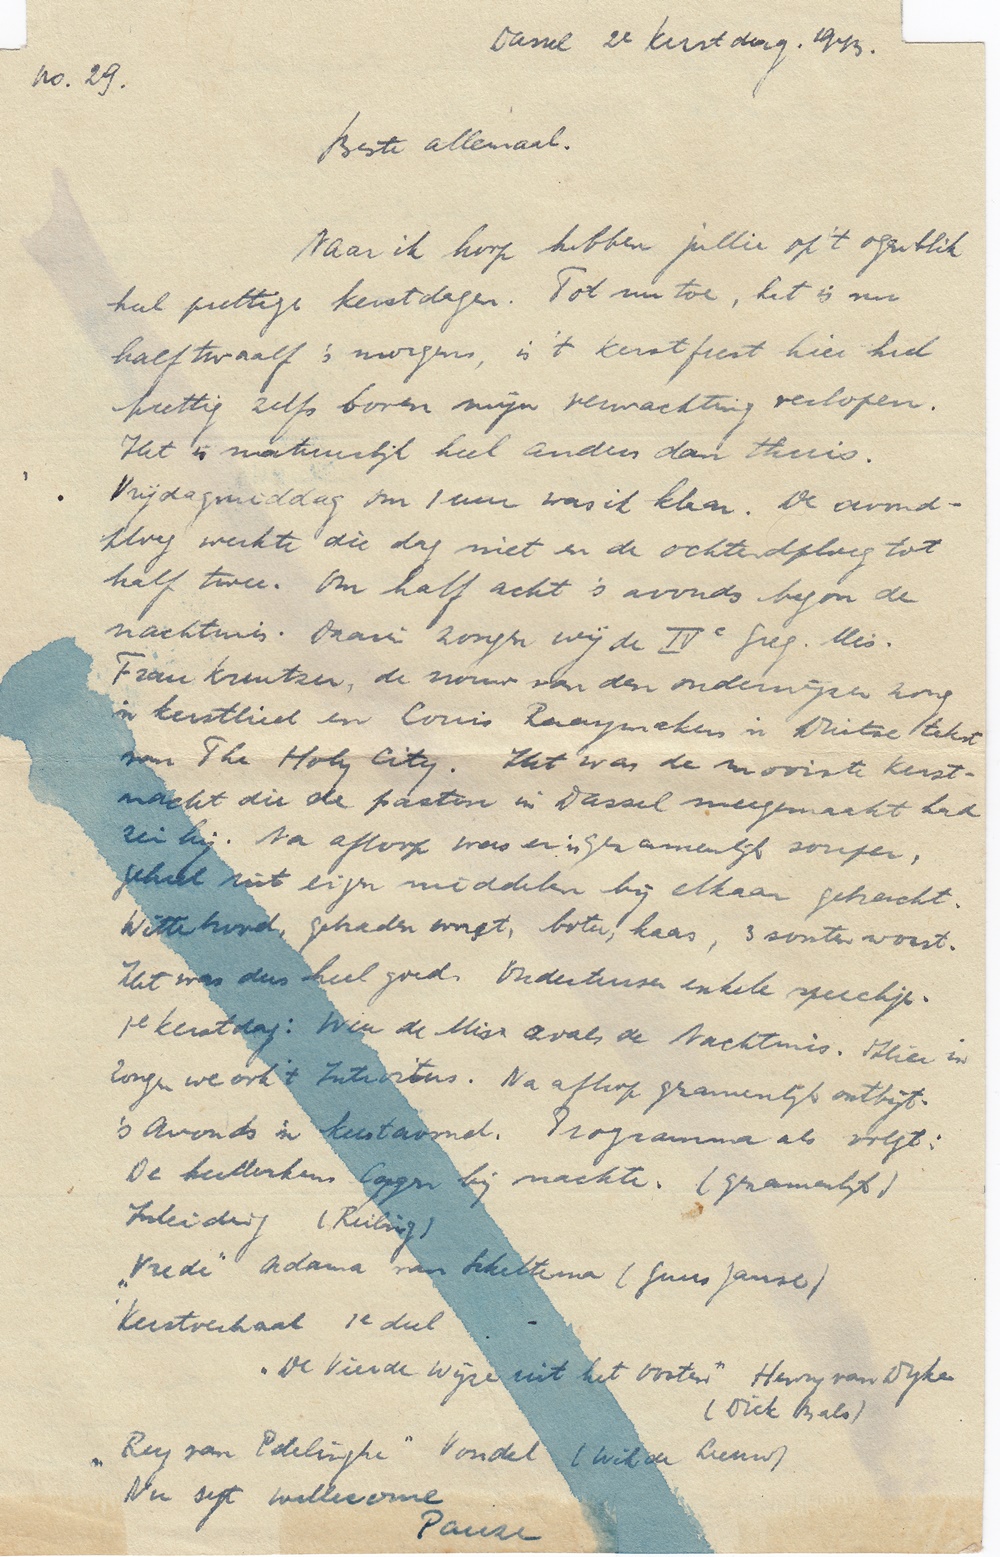 Dassel 2e Kerstdag. 1943.
no. 29.
Beste allemaal.
Naar ik hoop hebben jullie op 't ogenblik
heel prettige kerstdagen. Tot nu toe, het is nu
half twaalf 's morgens, is 't kerstfeest hier heel
prettig zelfs boven mijn verwachting verlopen.
Het is natuurlijk heel anders dan thuis.
Vrijdagmiddag om 1 uur was ik klaar. De avond-
ploeg werkte die dag niet en de ochtendploeg tot
half twee. Om half acht 's avonds begon de
nachtmis. Daarin zongen wij de IVe Greg. Mis.
Frau Kreutzer, de vrouw van den onderwijzer zong
'n kerstlied en Louis Raaymakers 'n Duitse tekst
van The Holy City. Het was de mooiste Kerst-
nacht die de pastoor in Dassel meegemaakt had
zei hij. Na afloop was er 'n gezamenlijk souper,
geheel uit eigen middelen bij elkaar gebracht.
Wittebrood, gebraden worst, boter, kaas, 3 soorten worst.
Het was dus heel goed. Ondertussen enkele speechjes.
1e Kerstdag: Weer de Mis zoals de Nachtmis. Hier in
zongen we ook 't Introïtus. Na afloop gezamenlijk ontbijt.
's Avonds 'n kerstavond. Programma als volgt:
De herderkens lagen bij nachte. (gezamenlijk)
Inleiding (Reiling)
„Vrede" Adama van Scheltema (Guus Janse)
Kerstverhaal 1e deel
„De Vierde Wijze uit het Oosten" Henry van Dyke
(Dick Bals)
„Rey van Edelinghe" Vondel (Wil de Leeuw)
Nu sijt wellecome
Pauze